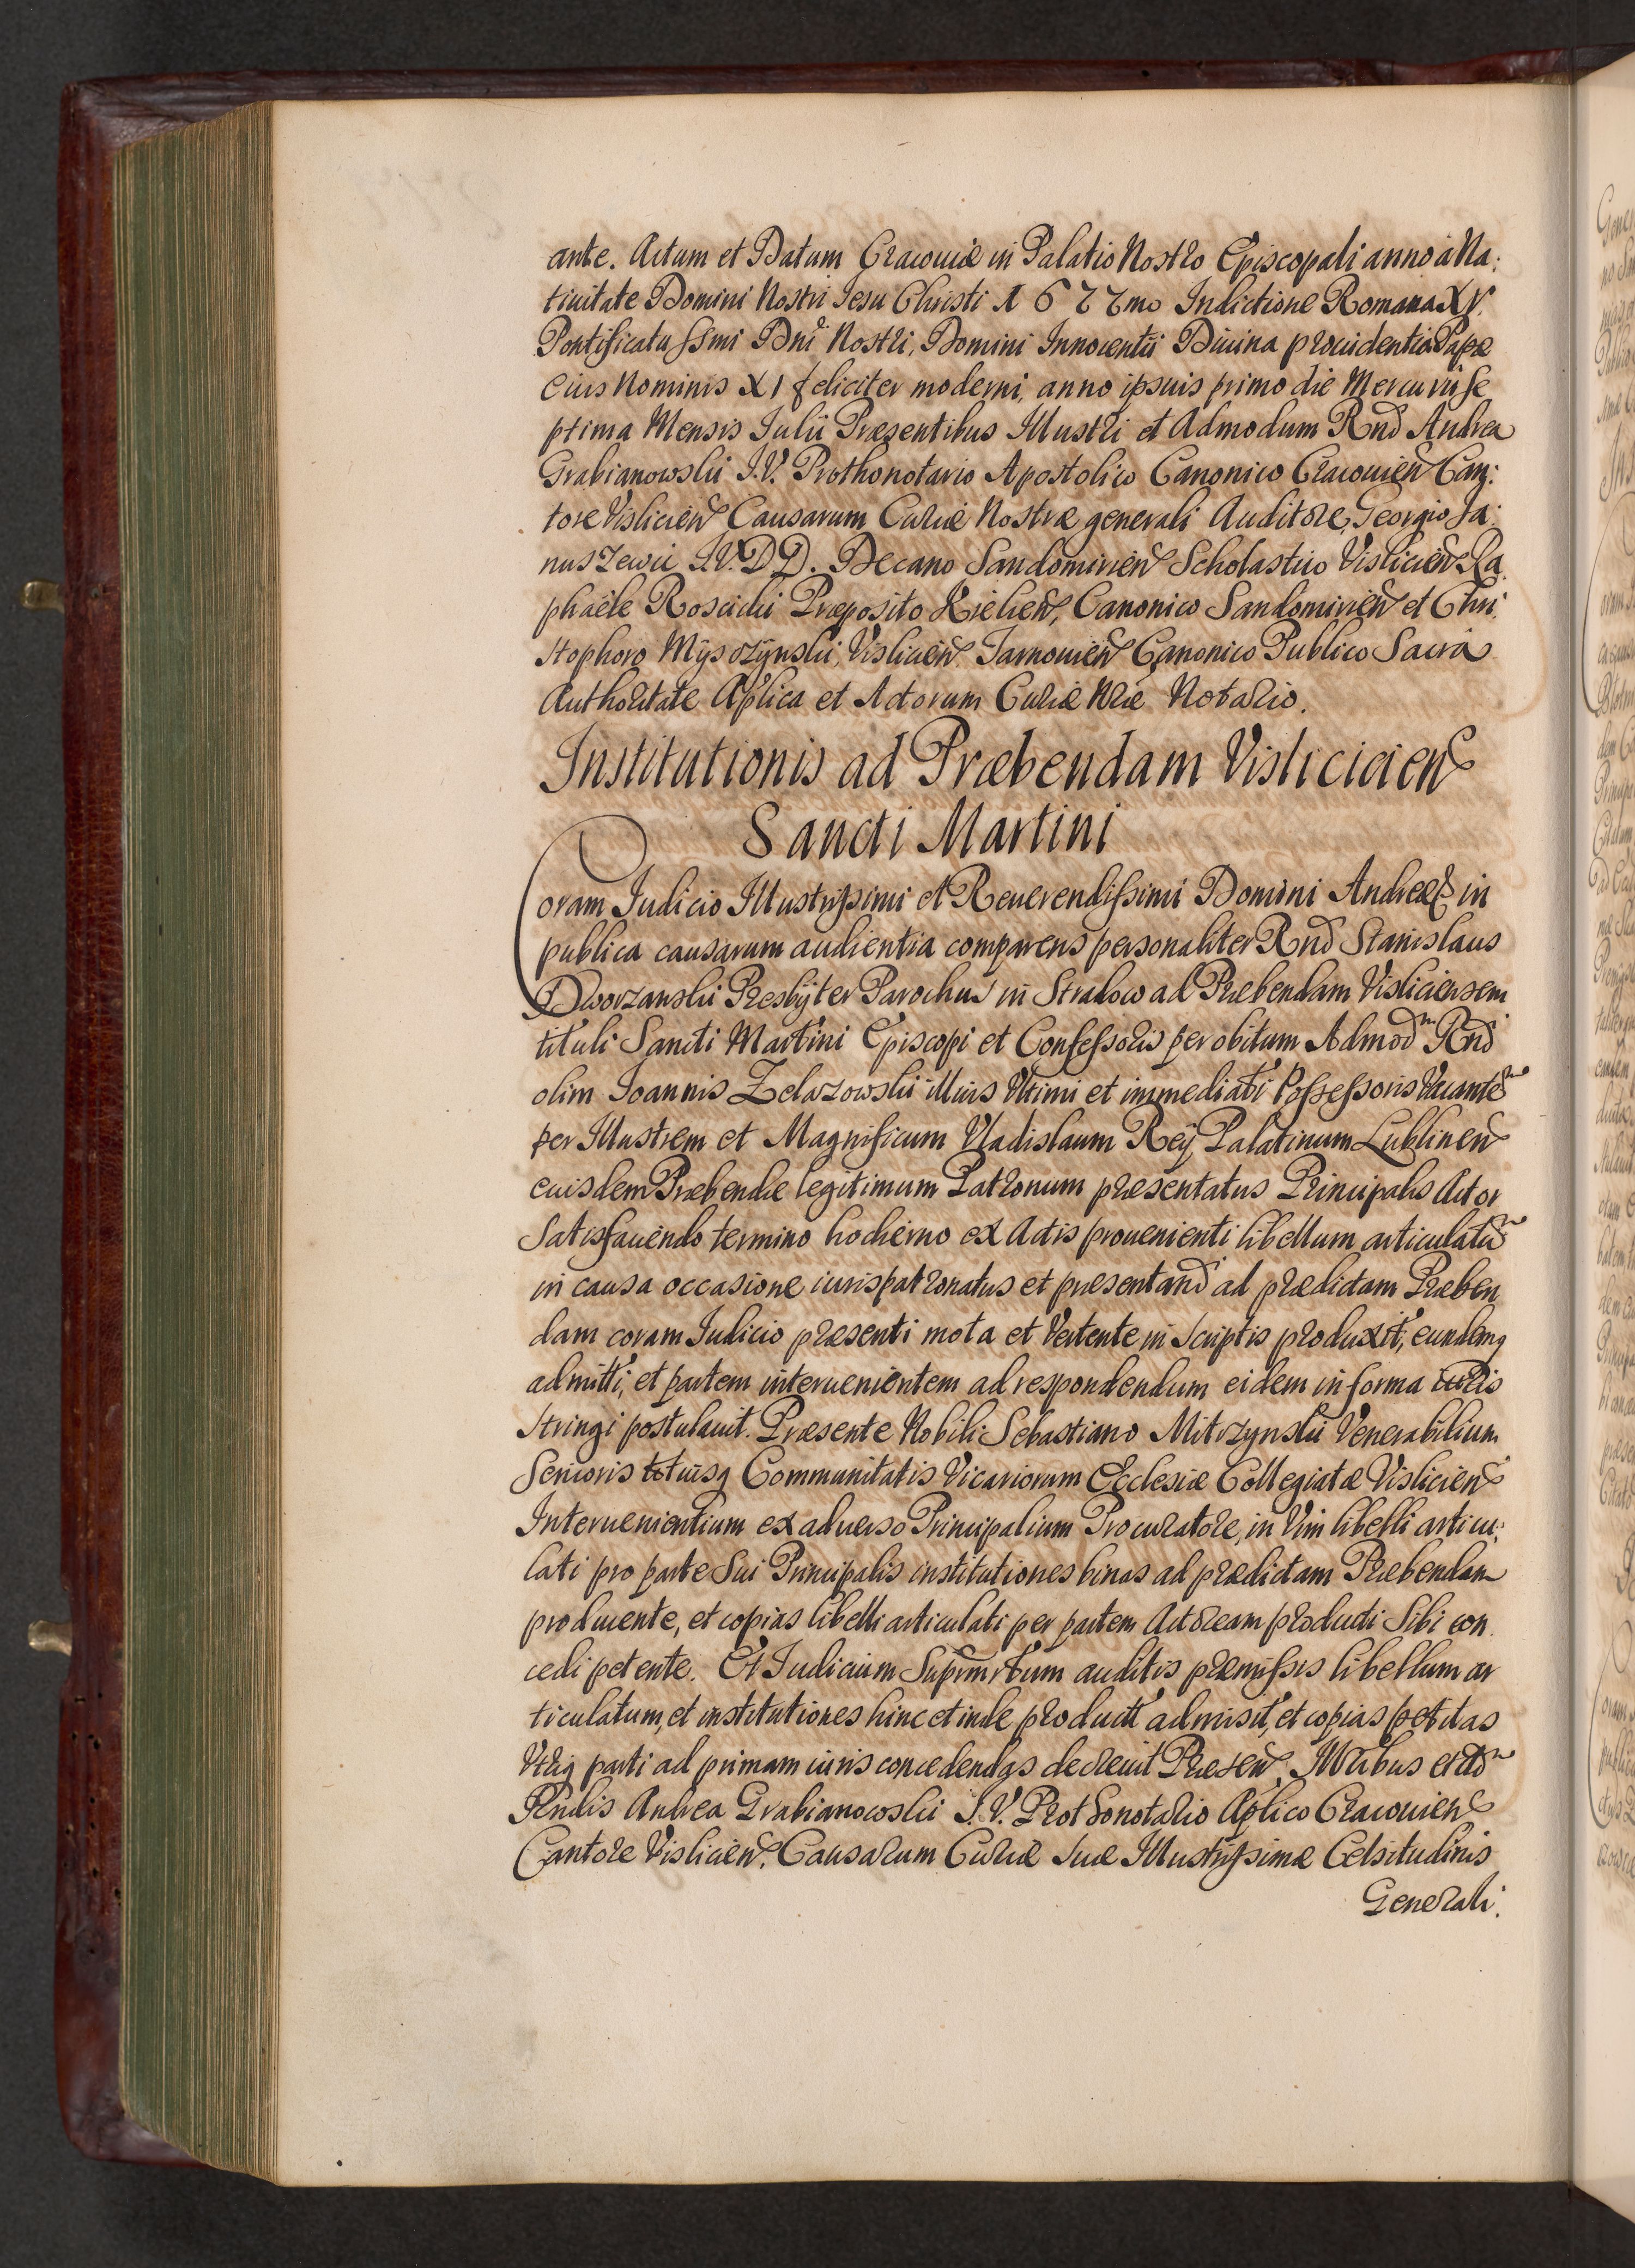 ante. Actum et Datum Cracoviæ in Palatio Nostro Episcopali anno à Na:
tiuitate Domini Nostri Iesu Christi 1677mo Indictione Romana XV.
Pontificatu ssmi Dni Nostri, Domini Innocentii Diuina prouidentia Papæ
eius Nominis XI feliciter moderni, anno ipsuis primo die Mercurii se
ptima Mensis Iulii Præsentibus Illustri et Admodum Rnd Andrea
Grabianowski I.V. Prothonotario Apostolico Canonico Cracouien Can:
tore Vislicien Causarum Curiæ Nostræ generali Auditore, Georgio Ja:
nuszewic I.V.DD. Decano Sandomirien Scholastico Vislicien Ra
phaële Roscicki Præposito Kielien, Canonico Sandomirien et Chri:
stophoro Myszczynski, Vislicien Tarnouien Canonico Publico Sacra
Authoritate Aplica et Actorum Curiæ Nræ Notario.
Institutionis ad Præbendam Visliciciens
Sancti Martini
Coram Iudicio Illustrissimi et Reuerendissimi Domini Andreæ in
publica causarum audientia comparens personaliter Rnd Stanislaus
Dworzanski Presbyter Parochus in Stradow ad Præbendam Visliciensem
tituli Sancti Martini Episcopi et Confessoris per obitum Admod Rnd
olim Ioannis Zelazowski illius Vltimi et immediati Possessoris Vacante
per Illustrem et Magnificum Vladislaum Rey Palatinum Lublinen
euisdem Præbendæ legitimum Patronum præsentatus Principalis Actor
Satisfaciendo termino hodierno ex Actis prouenienti libellum articulatu
in causa occasione iurispatronatus et præsentand ad prædictam Præben
dam coram Iudicio præsenti mota et Vertente in Scriptis produxit, eundemq
admitti, et partem interuenientem ad respondendum eidem in forma iuris
stringi postulauit. Præsente Nobili Sebastiano Mitczynski Venerabilium
Senioris totiusq Communitatis Vicariorum Ecclesiæ Collegiatæ Vislicien
Interuenientium ex aduerso Principalium Procuratore, in Vim libelli articu:
lati pro parte Sui Principalis institutiones binas ad prædictam Præbendam
producente, et copias libelli articulati per partem Actoream producti Sibi con
cedi petente. Et Iudicium Suprmrtum auditis præmissis libellum ar
ticulatum, et institutiones hinc et inde product admisit, et copias petitas
Vtriq parti ad primam iuris concedendas decreuit Præsen. Illribus et Ad
Rendis Andrea Grabianowski I.V. Prothonotario Aplico Cracouien
Cantore Vislicien. Causarum Curiæ Suæ Illustrissimæ Celsitudinis
Generali.